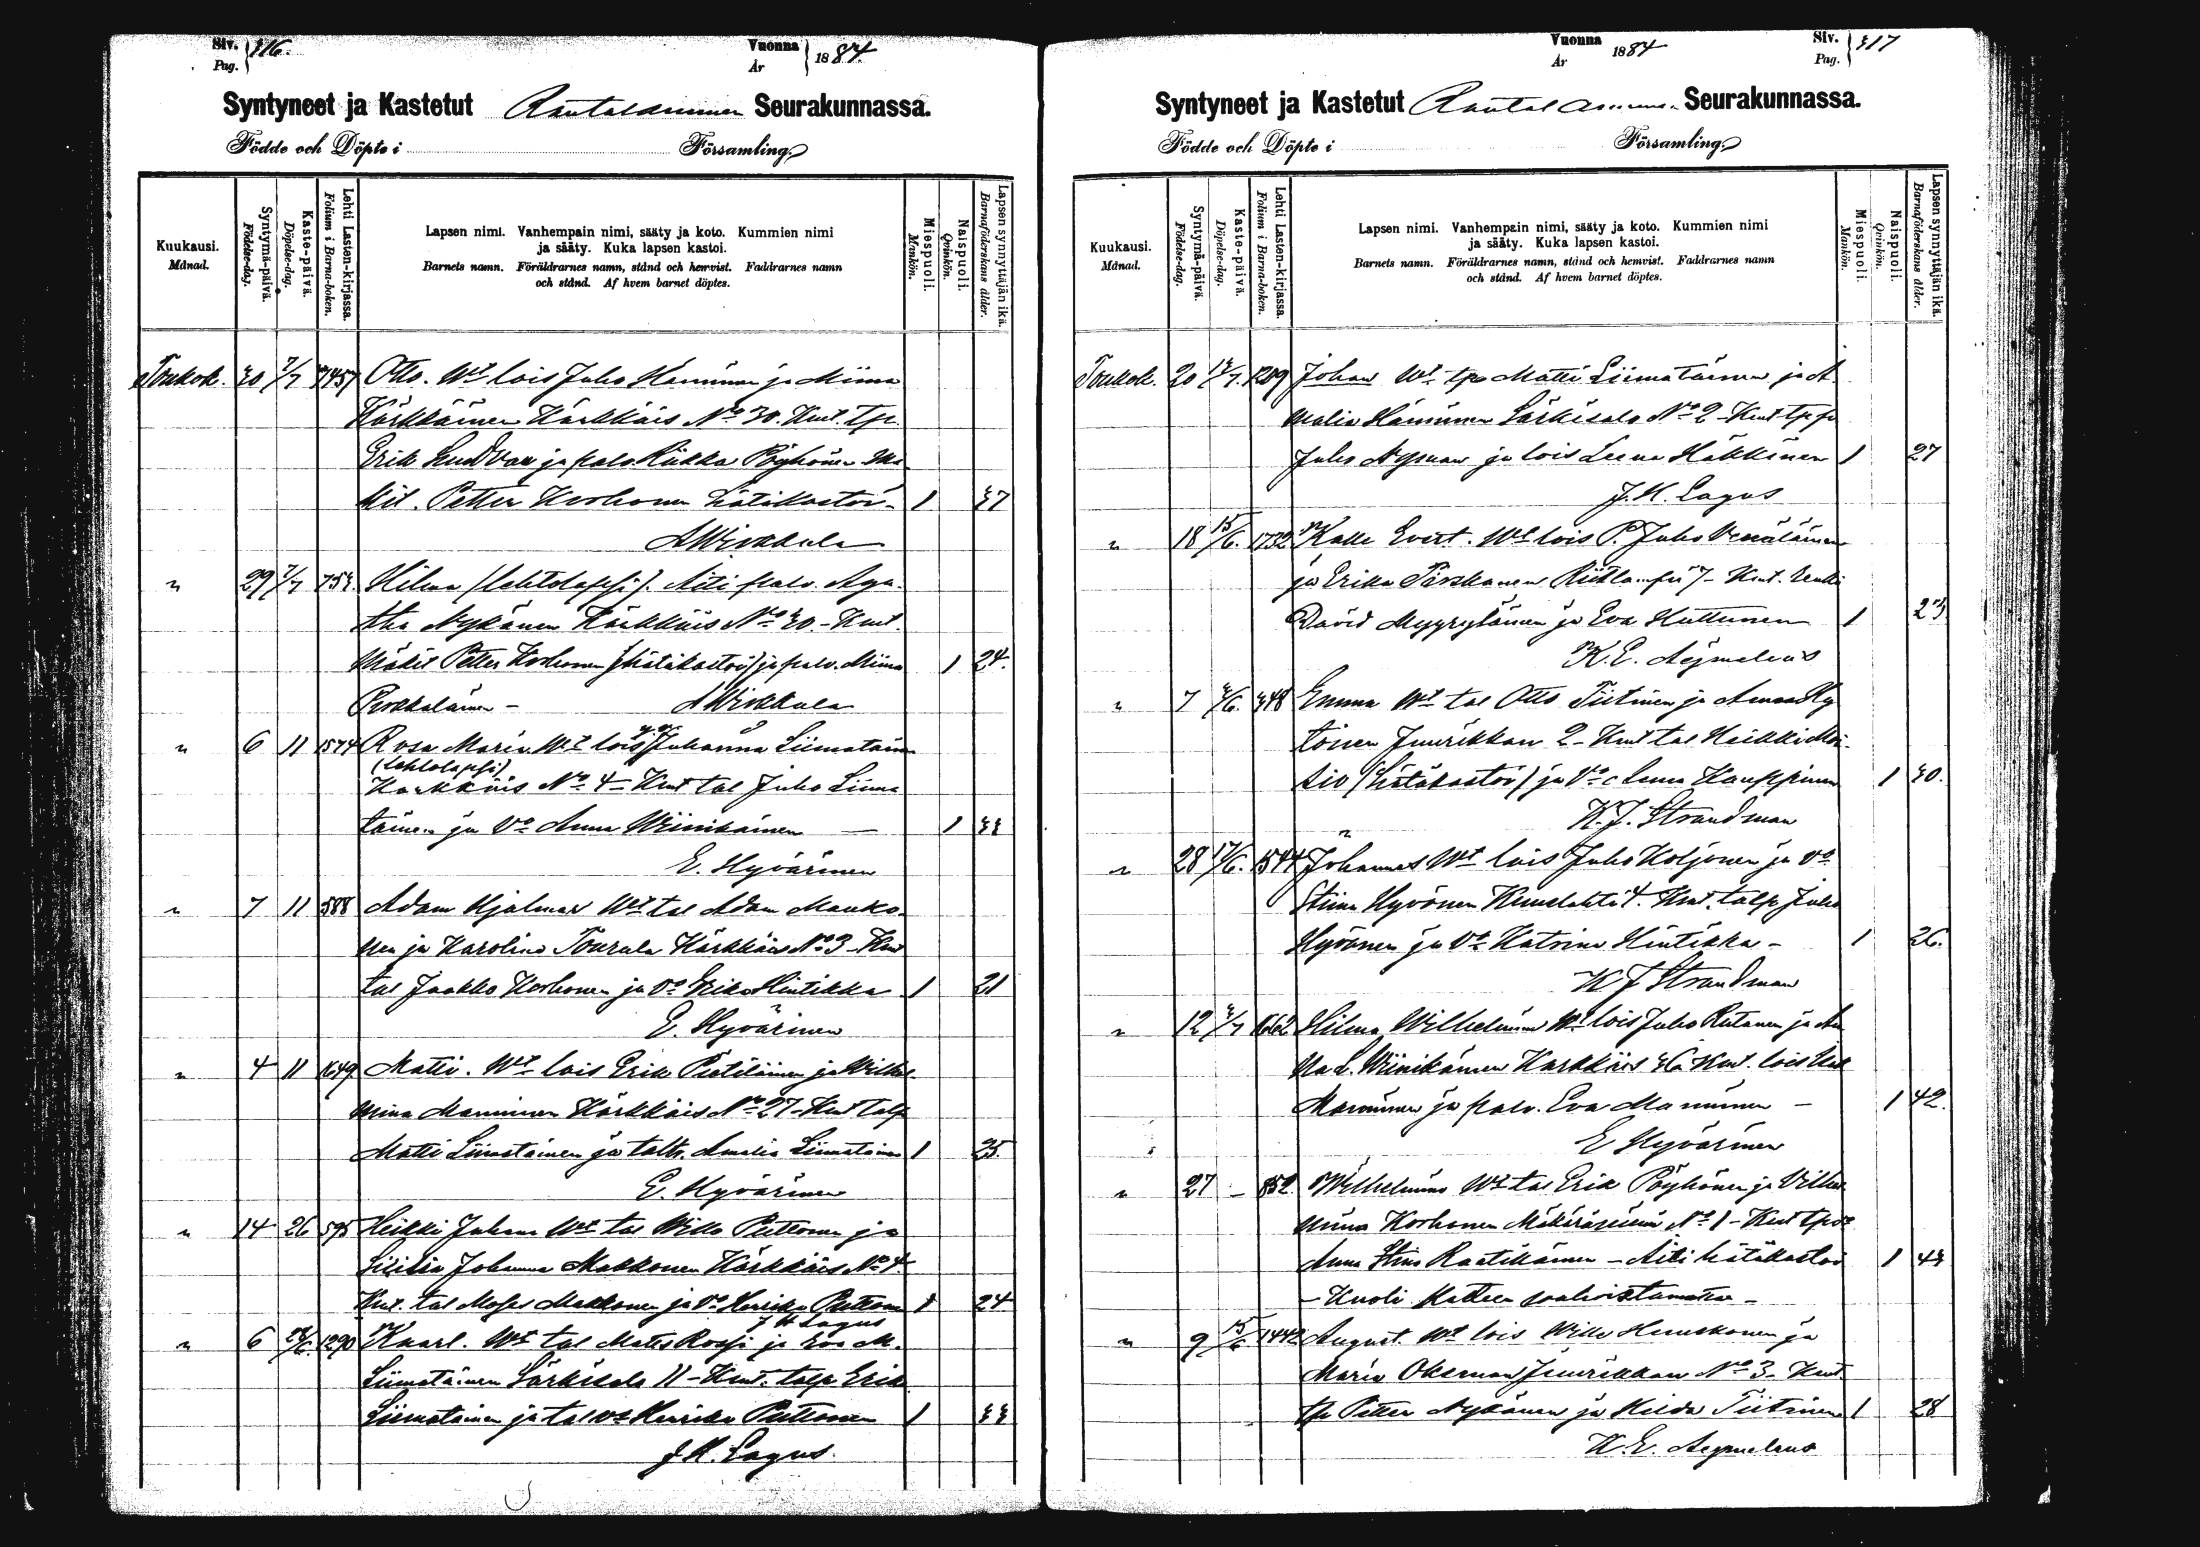 Siv. 316.
Pag.
Vuonna 1884.
År
Syntyneet ja Kastetut Rautalammen Seurakunnassa.
Födde och Döpte i Församling
Kuukausi.
Månad.
Syntymä-päivä.
Födelse-dag.
Kaste-päivä.
Döpelse-dag.
Lehti Lasten-kirjassa.
Folium i Barna-boken.
Lapsen nimi. Vanhempain nimi, sääty ja koto. Kummien nimi
ja sääty. Kuka lapsen kastoi.
Barnets namn. Föräldrarnes namn, stånd och hemvist. Faddrarnes namn
och stånd. Af hvem barnet döptes.
Miespuoli.
Mankön.
Naispuoli.
Qvinkön.
Lapsen synnyttäjän ikä.
Barnaföderskans ålder.
Toukok. 30 7/7 Otto. Wt lois Juho Hänninen ja Miina
Kärkkäinen Kärkkäis No 30. Kmt. tpr.
Erik ja palv. Riikka Pöyhönen
kit. Petter Korhonen hätäkastoi- 1 37
A Wirkkula
" 29 7/7 753. Hilma (lehtolapsi). Äiti palv. Aga-
tha Nykänen Kärkkäis No 30. - Kmt.
Mäkit Petter Korhonen (hätäkastoi) ja palv. Miina 1 24.
Pirkkalainen - A Wirkkula
" 6 11 1574 Rosa Maria Wt lois Juhanna Liimatainen
(lehtolapsi)
Kärkkäis No 4 - Kmt tal Juho Liima
tainen ja Vo Anna Wiinikainen 1 33
E. Hyvärinen
" 7 11 588 Adam Hjalmar Wt tal Adam Manko-
nen ja Karolina Tourula Kärkkäis No 3 - Kmt
tal Jaakko Korhonen ja Vo Erika Hintikka 1 21
E. Hyvärinen
" 4 11 1649 Matti. Wt lois Erik Pietiläinen ja Wilhel-
mina Manninen Kärkkäis No 27 - Kmt talp
Matti Liimatainen ja taltr. Amalia Liimatainen 1 25.
E. Hyvärinen
" 14 26 595 Heikki Juhana Wt tal Wille Puttonen ja
Johanna Makkonen Kärkkäis No 4.
Kmt. tal Moses Makkonen ja Vo Henrika Puttonen 1 24
J H Lagus
" 6 1290 Kaarl. Wt tal Matts Rossi ja Eva M.
Liimatainen Särkisalo 11 - Kmt. talp Erik
Liimatainen ja tal vo Henrika Puttonen 1 33
J. H. Lagus.
Vuonna 1884
År
Siv. 317
Pag.
Syntyneet ja Kastetut Rautalammen Seurakunnassa.
Födde och Döpte i Församling
Kuukausi.
Månad.
Syntymä-päivä.
Födelse-dag.
Kaste-päivä.
Döpelse-dag.
Lehti Lasten-kirjassa.
Folium i Barna-boken.
Lapsen nimi. Vanhempain nimi, sääty ja koto. Kummien nimi
ja sääty. Kuka lapsen kastoi.
Barnets namn. Föräldrarnes namn, stånd och hemvist. Faddrarnes namn
och stånd. Af hvem barnet döptes.
Miespuoli.
Mankön.
Naispuoli.
Qvinkön.
Lapsen synnyttäjän ikä.
Barnaföderskans ålder.
Toukok. 20 1289 Johan Wt tpr Matti Liimatainen ja A-
malia Hänninen Särkisalo No 2 - Kmt tpp
Juho Nyman ja lois Leena Häkkinen 1 27
J. H. Lagus
" 18 15/6. 1732 Kalle Evert. Wt lois P. Juho Venäläinen
ja Erika Pärskänen 7 - Kmt.
David Myyryläinen ja Eva Huttunen 1
K. E. Aejmelaus
" 7 348 Emma Wt tal Otto Tiitinen ja Anna Hy-
tönen Juurikkan 2 - Kmt tal Heikki
(hätäkastoi) ja Vo Leena Kauppinen 1 30.
K. J. Strandman
" 28 17/6. 1544 Johannes Wt lois Juho Koljonen ja Vo
Stiina Hyvönen 4. Kmt. talp Juho
Hyvönen ja Vo Katrina Hintikka - 1 26.
K J Strandman
" 12 1662 Hilma Wilhelmina Wt lois Juho Rutanen ja An-
na L. Wiinikainen Kärkkäis 36 Kmt. lois
Manninen ja palv. Eva Manninen - 1 42.
E Hyvärinen
" 27 - 852. Wilhelmina Wt tal Erik Pöyhönen ja Vilhel-
miina Korhonen No 1 - Kmt
Anna Stina Raatikainen - Äiti hätäkastoi 1 43
- Kuoli kasteen vahvistamatta -
" 9 15/6. 1442 August. Wt lois Wille Hinskonen ja
Maria Oksman Juurikkan No 3 - Kmt
tp Petter Nykänen ja Hilda Tiitinen 1 28
K. E. Aejmelaus